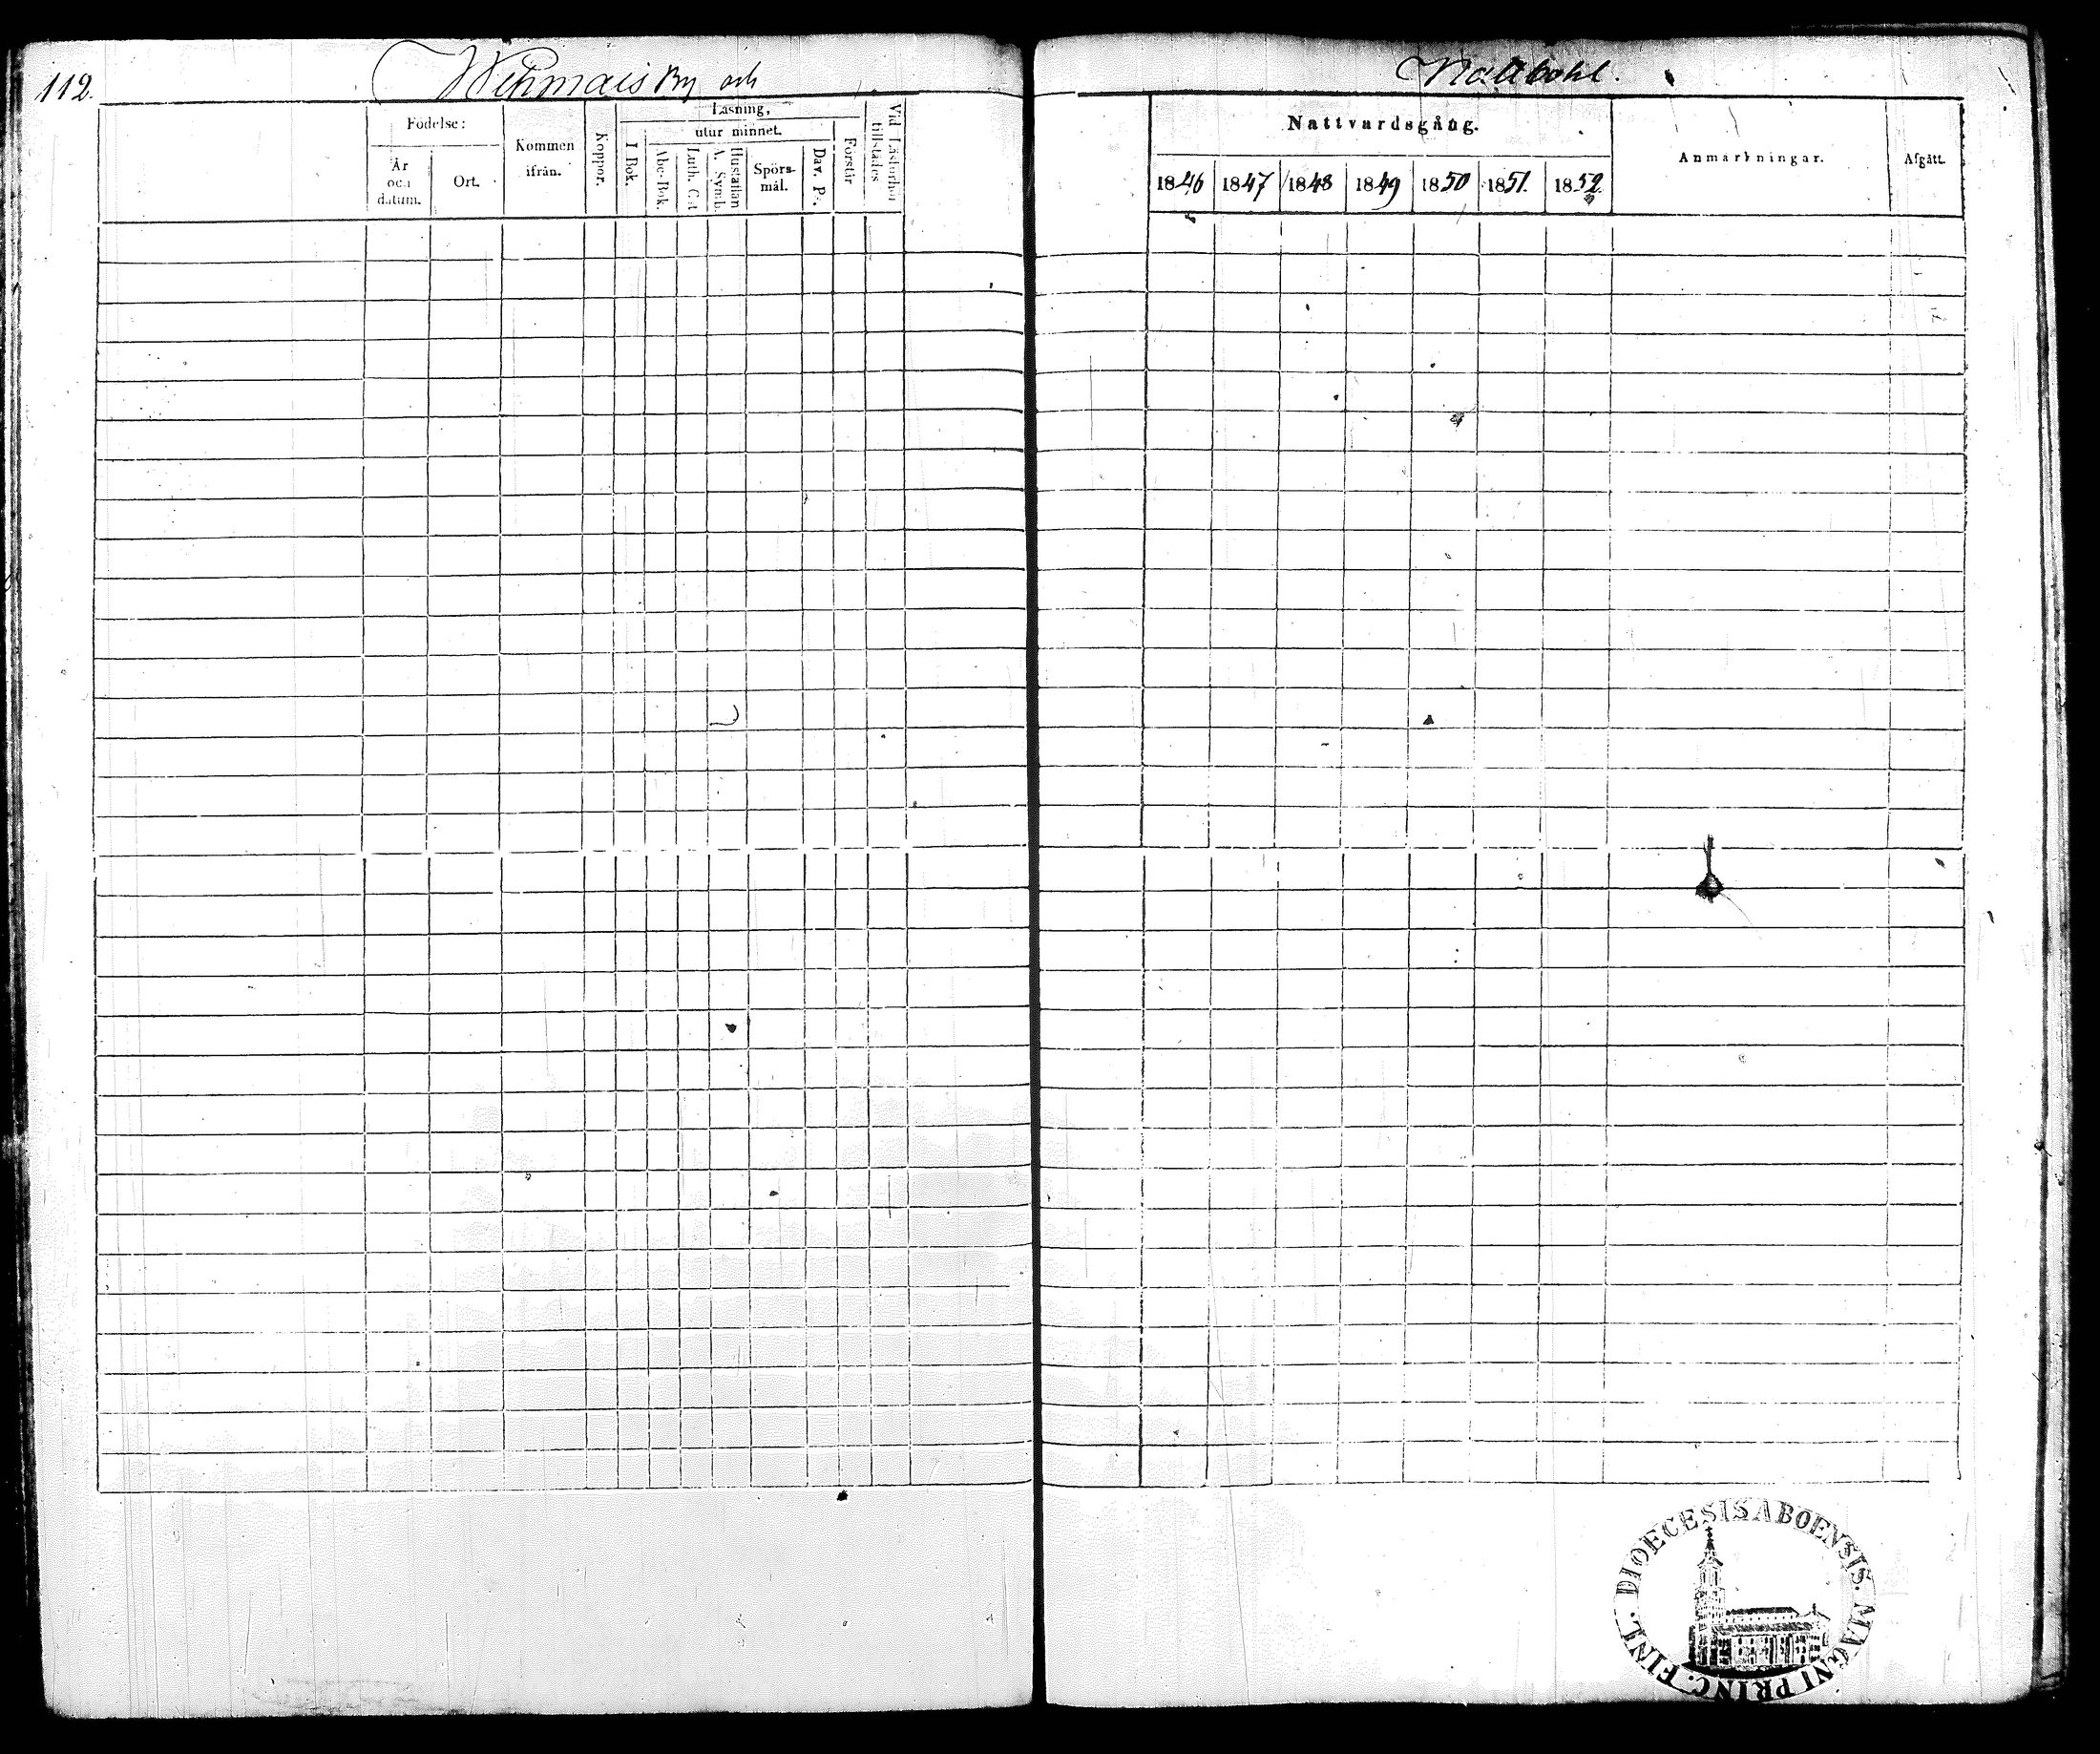 112.
Wehmais By och
Födelse:
År och datum.
Ort.
Kommen ifrån.
Koppor.
Läsning,
I Bok.
utur minnet.
Abc-Bok.
Luth. Cat
Hustaflan A. Symb.
Spörsmål.
Dav. Ps.
Förstår
Vid Läsförhör tillstädes
Nattvardsgång.
1846 1847 1848 1849 1850 1851. 1852.
Anmärkningar.
Afgått.
DIOECESIS ABOENSIS. MAGNI PRINC. FINL.